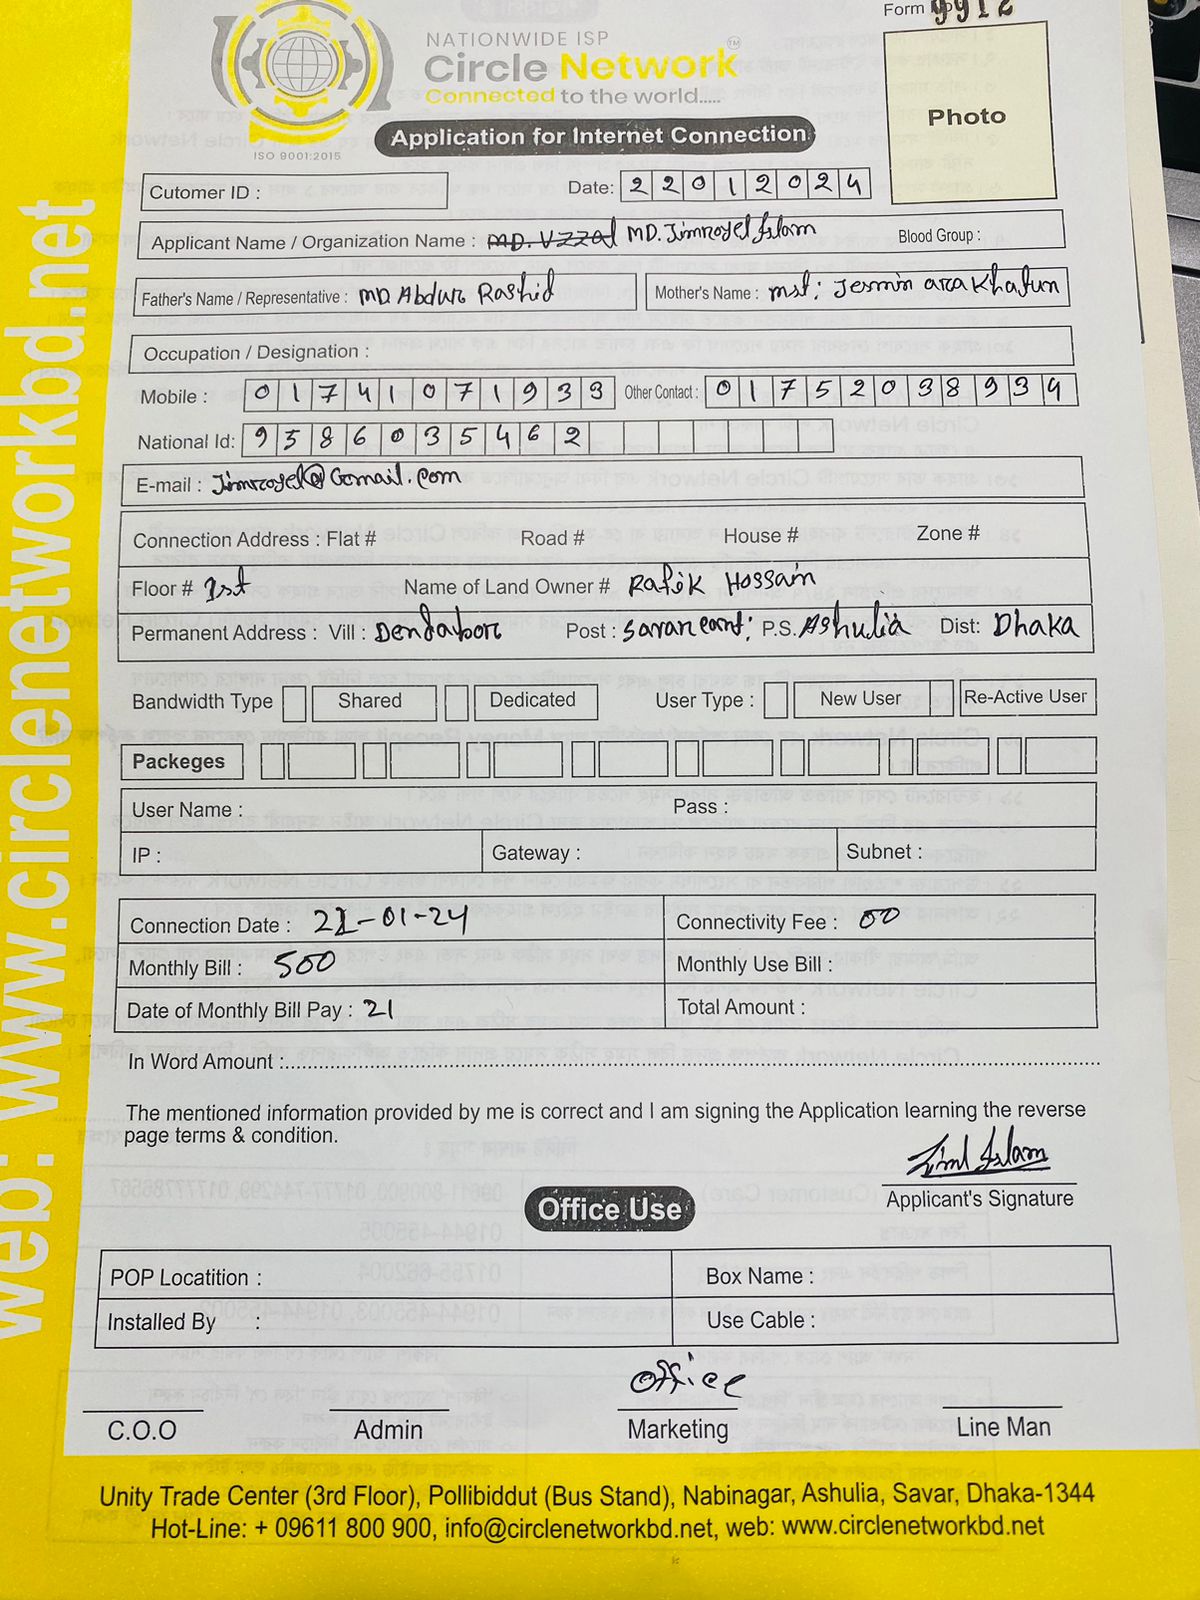 Form No 9912
NATIONWIDE ISP
Circle Network TM
Connected to the world.....
ISO 9001:2015
Application for Internet Connection
Photo
Cutomer ID :
Date: 22012024
Applicant Name / Organization Name : MD. Uzzal MD. Jimroyel Islam Blood Group :
Father's Name / Representative : MD. Abdur Rashid Mother's Name : mst: Jesmin ara Khatun
Occupation / Designation :
Mobile : 01741071933 Other Contact : 01752038934
National Id: 9586035462
E-mail : Jimroyel@Gmail.com
Connection Address : Flat # Road # House # Zone #
Floor # 1st Name of Land Owner # Rafik Hossain
Permanent Address : Vill : Dendabor Post : Savar cant; P.S. Ashulia Dist: Dhaka
Bandwidth Type Shared Dedicated User Type : New User Re-Active User
Packeges
User Name : Pass :
IP : Gateway : Subnet :
Connection Date : 21-01-24 Connectivity Fee : 00
Monthly Bill : 500 Monthly Use Bill :
Date of Monthly Bill Pay : 21 Total Amount :
In Word Amount :
The mentioned information provided by me is correct and I am signing the Application learning the reverse
page terms & condition.
Islam
Applicant's Signature
Office Use
POP Locatition : Box Name :
Installed By : Use Cable :
office
C.O.O Admin Marketing Line Man
Unity Trade Center (3rd Floor), Pollibiddut (Bus Stand), Nabinagar, Ashulia, Savar, Dhaka-1344
Hot-Line: + 09611 800 900, info@circlenetworkbd.net, web: www.circlenetworkbd.net
web: www.circlenetworkbd.net